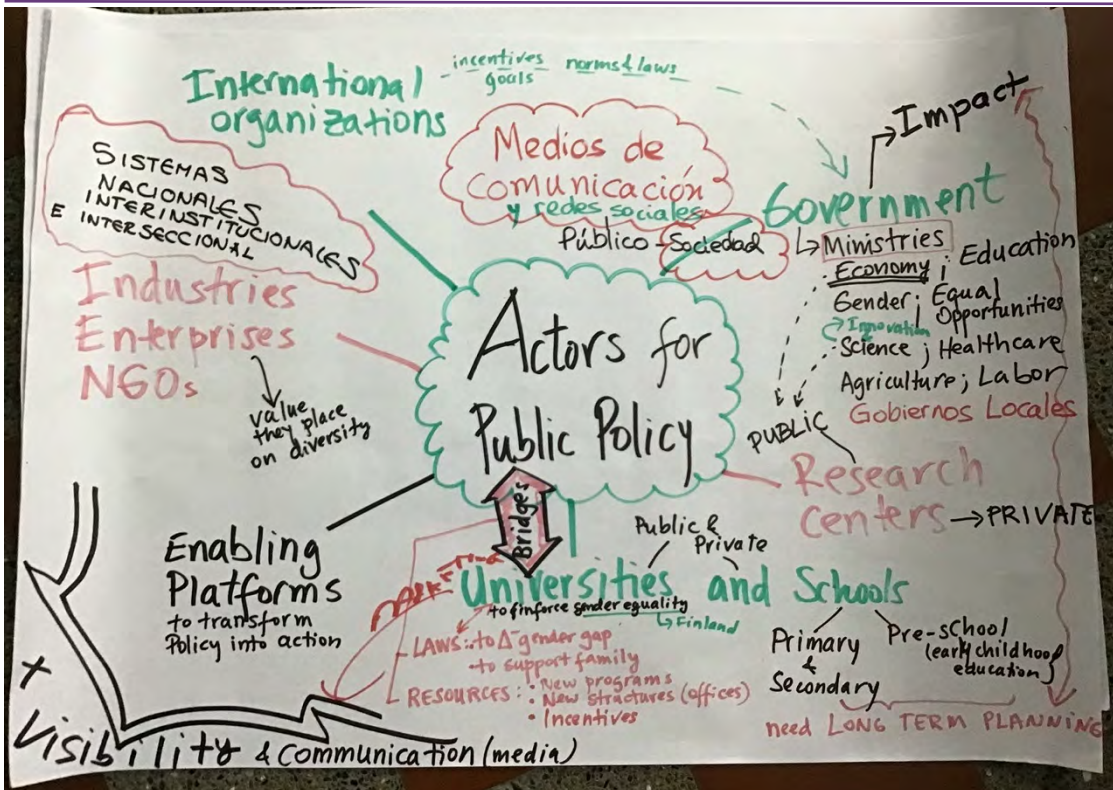 International
organizations
incentives
goals
norms & laws
Impact
SISTEMAS
NACIONALES
INTERINSTITUCIONALES
E INTERSECCIONAL
Medios de
Comunicación
y redes sociales
Público - Sociedad
Government
Ministries
Economy ; Education
Gender ; Equal
Opportunities
Innovation
Science ; Healthcare
Agriculture ; Labor
Gobiernos Locales
Industries
Enterprises
NGOs
value
they place
on diversity
Actors for
Public Policy
PUBLIC
Research
Centers → PRIVATE
Bridges
Enabling
Platforms
to transform
Policy into action
Public &
Private
Universities and Schools
to finforce gender equality
Finland
LAWS: to Δ gender gap
to support family
RESOURCES: • New programs
• New structures (offices)
• Incentives
Primary
&
Secondary
Pre-school
(early childhood
education)
need LONG TERM PLANNING
+
Visibility & communication (media)